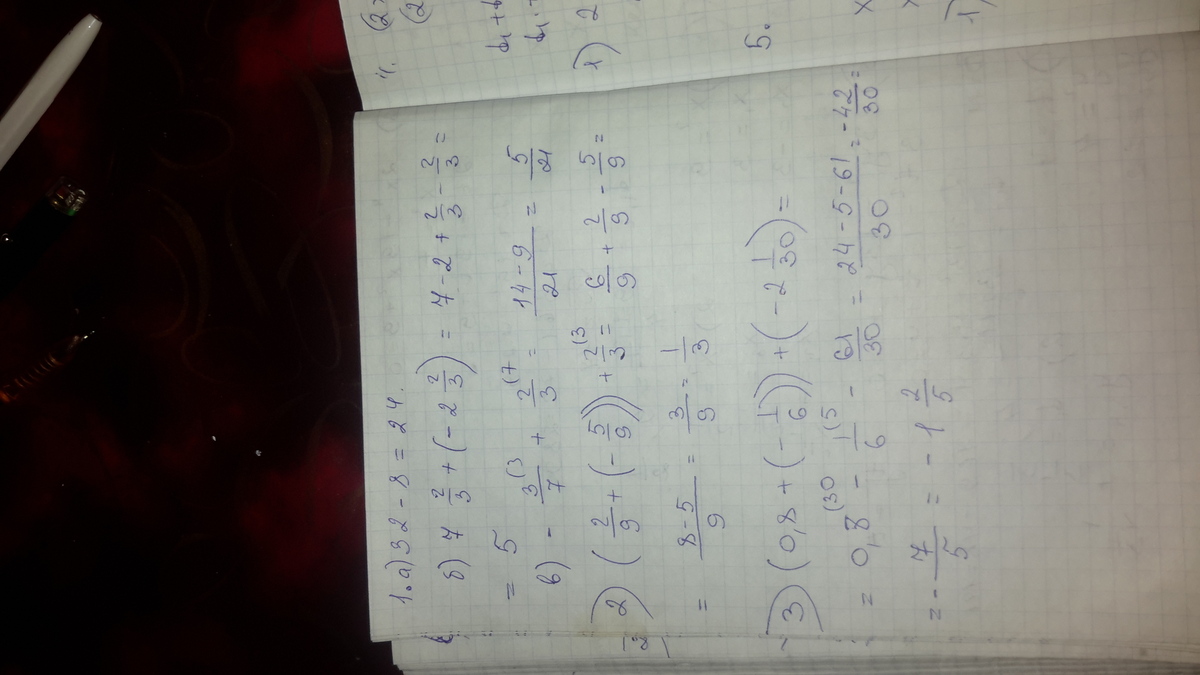 1. а) 32 - 8 = 24.
б) 7 2/3 + (- 2 2/3) = 7 - 2 + 2/3 - 2/3 =
= 5
в) - 3(3/7 + 2(7/3 = 14 - 9/21 = 5/21
2) (2/9 + (- 5/9)) + 2(3/3 = 6/9 + 2/9 - 5/9 =
= 8 - 5/9 = 3/9 = 1/3
3) (0,8 + (- 1/6)) + (- 2 1/30) =
= 0,8(30 - 1(5/6 - 61/30 = 24 - 5 - 61/30 = - 42/30 =
= - 7/5 = - 1 2/5
5.
1) 2